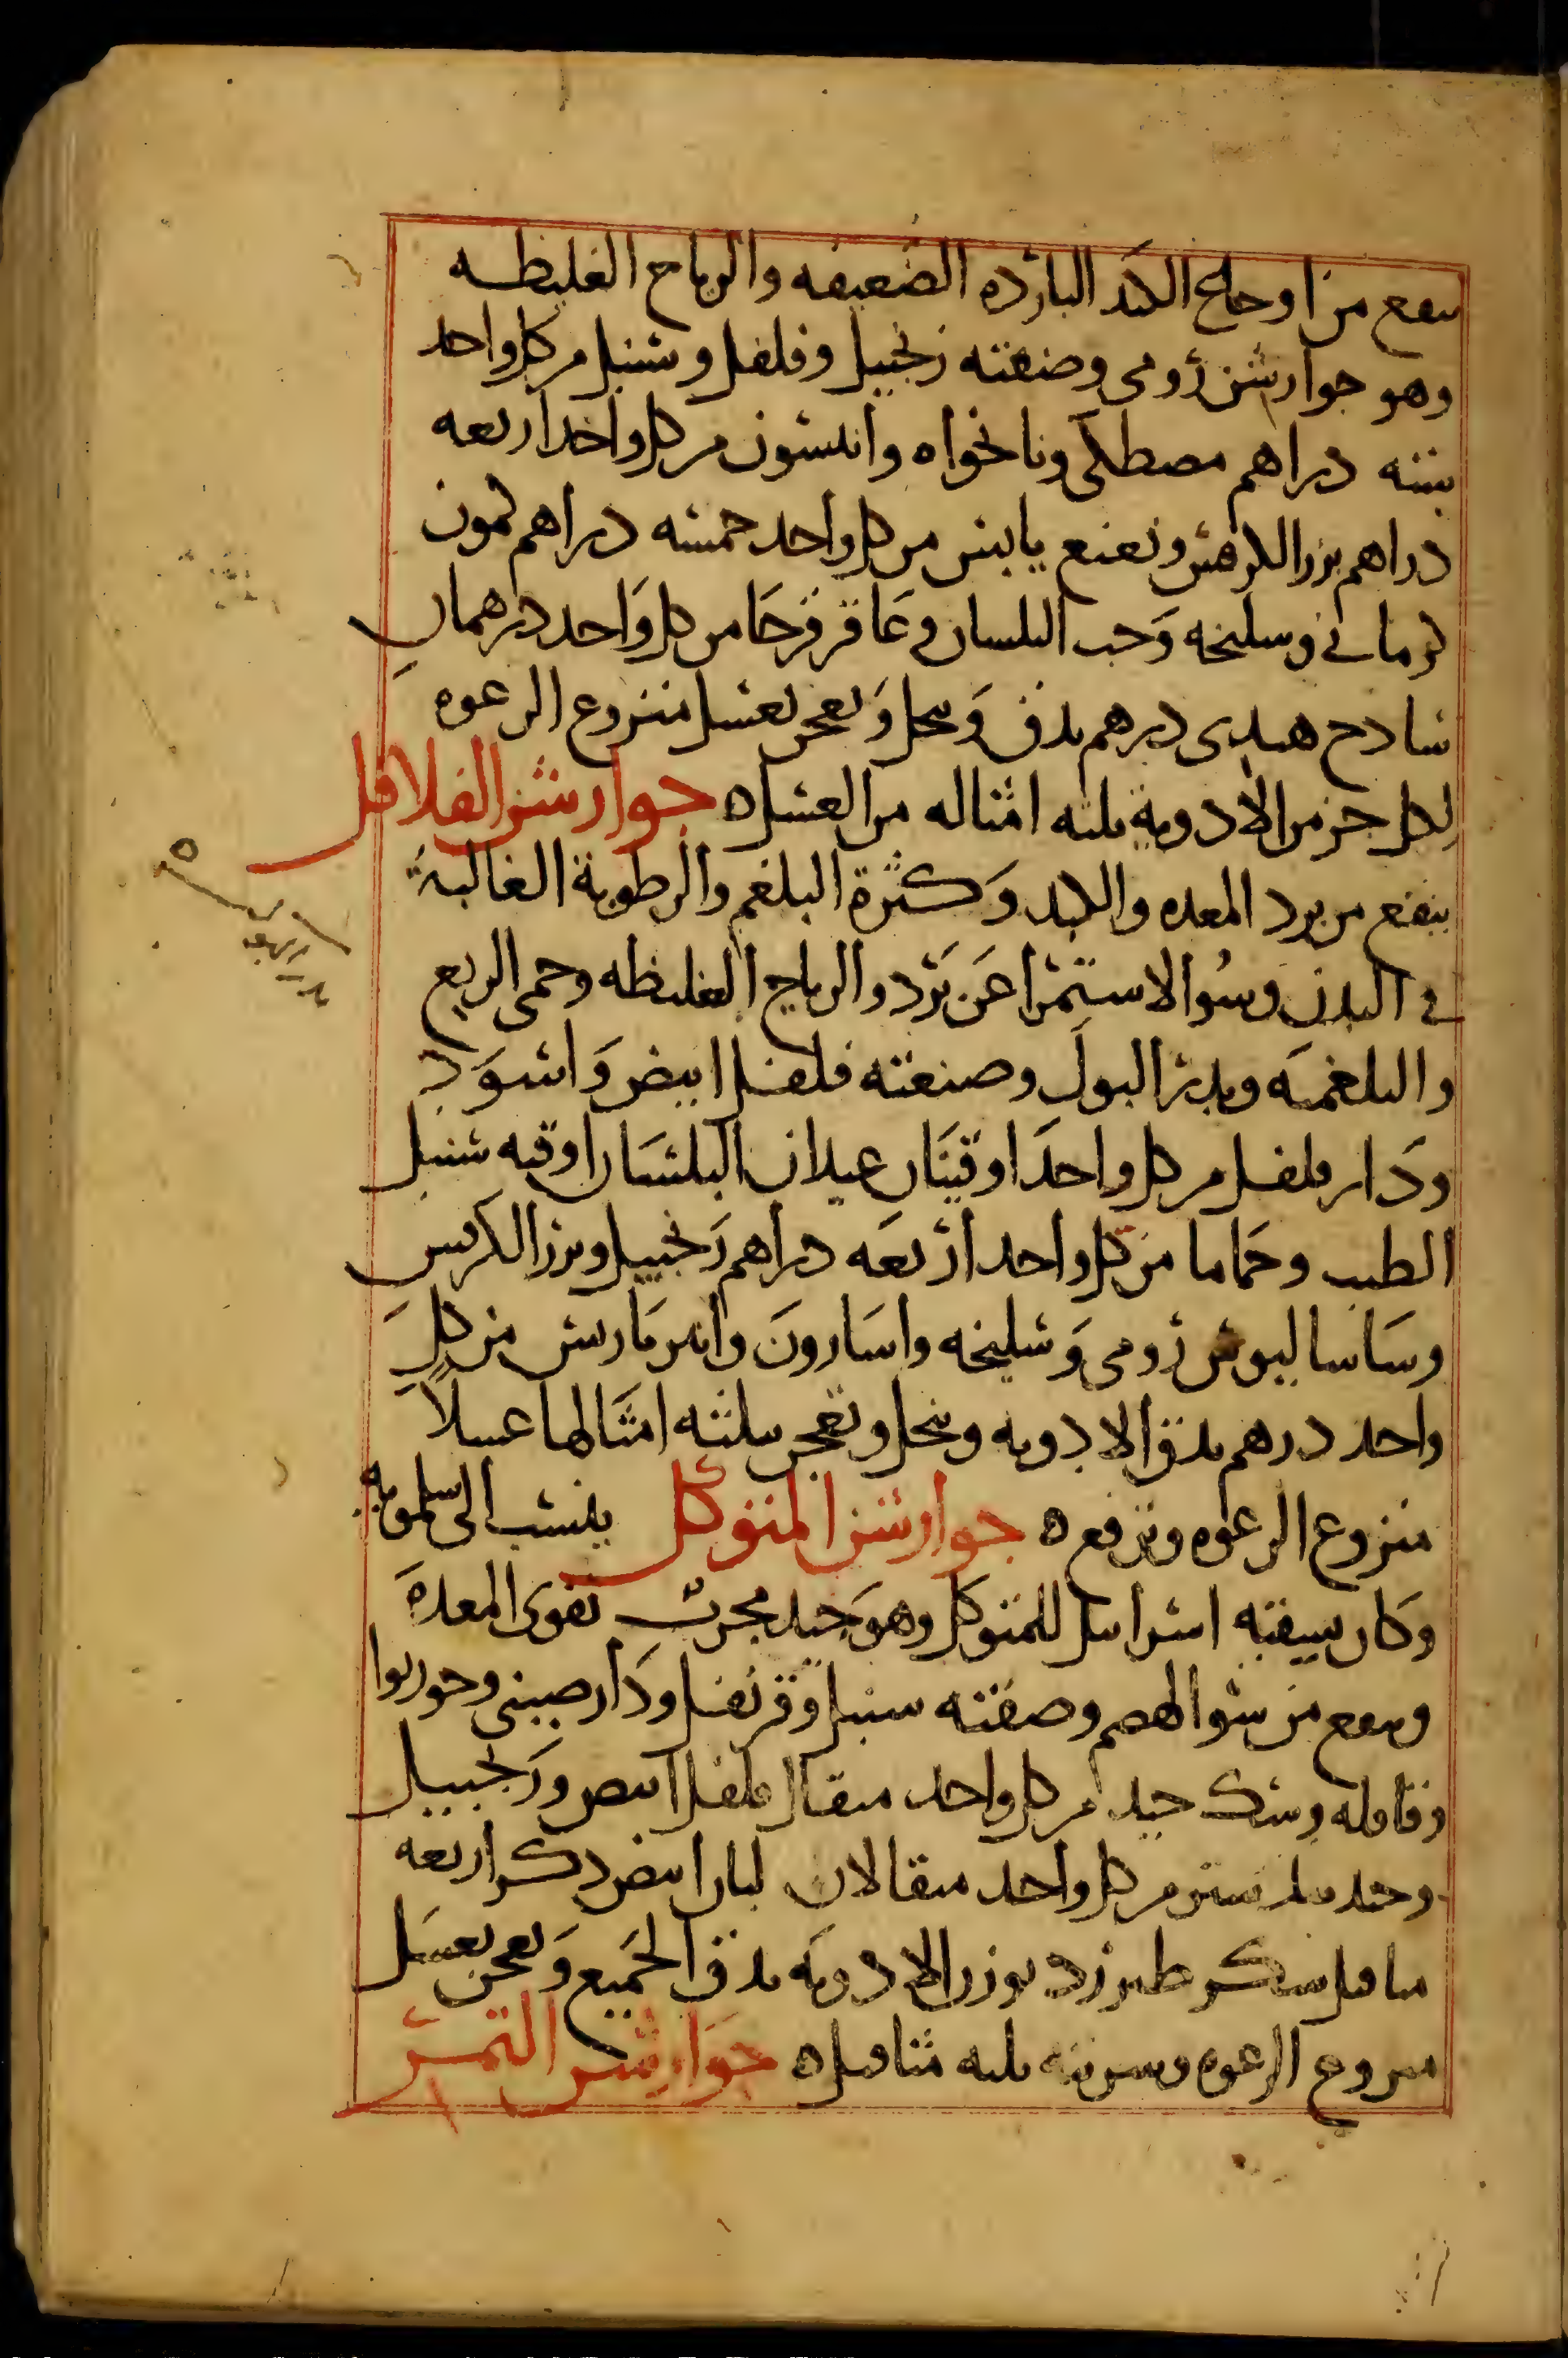 ينفع من اوجاع الكبد البارده الضعيفه والرياح الغليظه
وهو جوارشن رومى وصنعته زنجبيل وفلفل وسنبل من كل واحد
ستة دراهم مصطكى ونانخواه وانيسون من كل واحد اربعه
دراهم بزر الكرفس ونعنع يابس من كل واحد خمسه دراهم كمون
كرماني وسليخه وَحب البلسان وعَاقر قرحَا من كل وَاحد درهمان
سادج هندى درهم يدق وَينخل وَيعجن بعسل منزوع الرغوه
لكل جز من الادوية ثلثه امثاله من العسل ه جوارشن الفلافل
ينفع من برد المعده والكبد وَكثرة البلغم والرطوبة الغالبة
في البدن وسُو الاستمرا عَن بَرْد والرياح الغليظه وحمى الربع
والبلغميه ويدر البول وصنعته فلفل ابيض وَاسوَد
ودَار فلفل من كل واحدَ اوقيتَان عيدان البلسَان اوقيه سنبل
الطيب وحَماما من كل واحد اربعَه دراهم زَنجبيل وبزر الكرفس
وسَاساليوس رومى وَسليخه واسَارونَ وانيرمَارس من كلِ
واحد درهم يدق الادويه وينخل وتعجن بثلثه امثَالها عسلاً
منزوع الرغوه وترفع ه جوارشن المتوكل ينسب الى سلمويه
وَكان يسقيه اسراييل للمتوكل وهوَ جيد مجرب يقوى المعدهَ
وينفع من سو الهضم وصفته سنبل وقرنفل ودَارصينى وجوزبوا
وقاقله وسك جيد من كل واحد مثقال فلفل ابيض وزَنجبيل
وجندبيدستر من كل واحد مثقالان لبان ابيض ذكر اربعه
مثاقيل سكر طبرزد بوزن الادويَه يدق الجَميع وَيعجن بعسَل
منزوع الرغوه وشربته ثلثه مثاقيل ه جَوَارِشن التمر